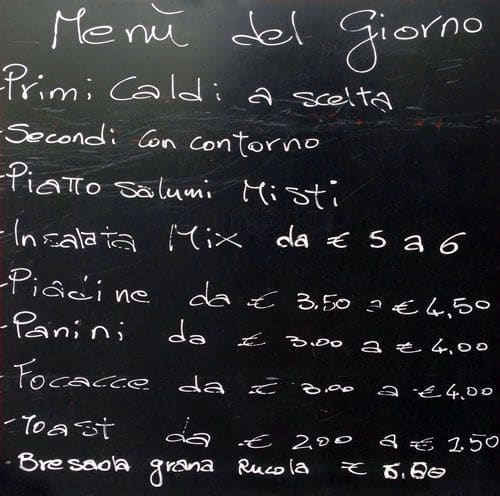 Menù del Giorno
-Primi Caldi a scelta
-Secondi con contorno
-Piatto salumi Misti
-Insalata Mix da € 5 a 6
-Piadine da € 3,50 a € 4,50
-Panini da € 3.00 a € 4,00
-Focacce da € 3.00 a € 4,00
-Toast da € 2,00 a €
-Bresaola grana Rucola €